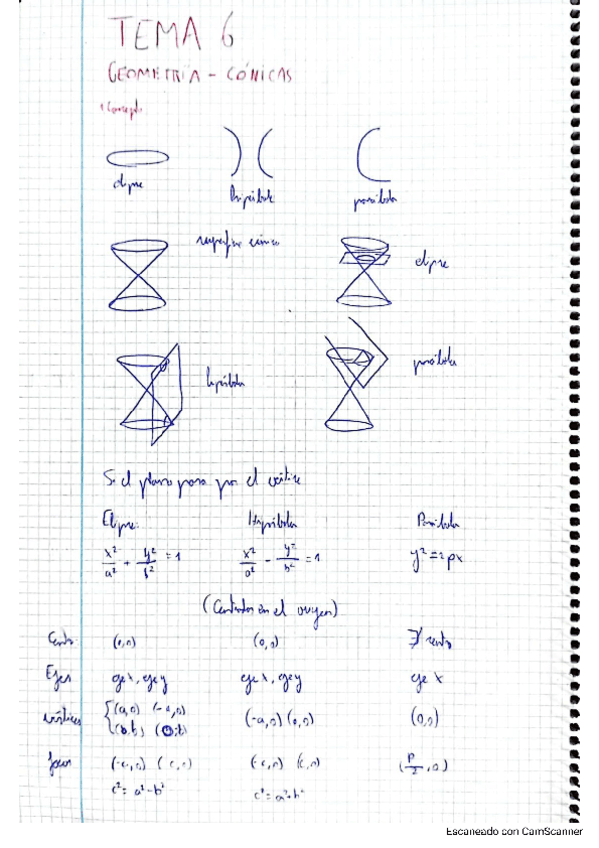 TEMA 6
GEOMETRÍA - CÓNICAS
1. Concepto
elipse hipérbola parábola
superficie cónica elipse
hipérbola parábola
Si el plano pasa por el vértice
Elipse Hipérbola Parábola
x²/a² + y²/b² = 1 x²/a² - y²/b² = 1 y² = 2px
(Centradas en el origen)
Centro (0,0) (0,0) ∄ centro
Ejes eje x, eje y eje x, eje y eje x
vértices {(a,0) (-a,0) (-a,0) (a,0) (0,0)
(0,b) (0,-b)
focos (-c,0) (c,0) (-c,0) (c,0) (p/2, 0)
c² = a² - b² c² = a² + b²
Escaneado con CamScanner